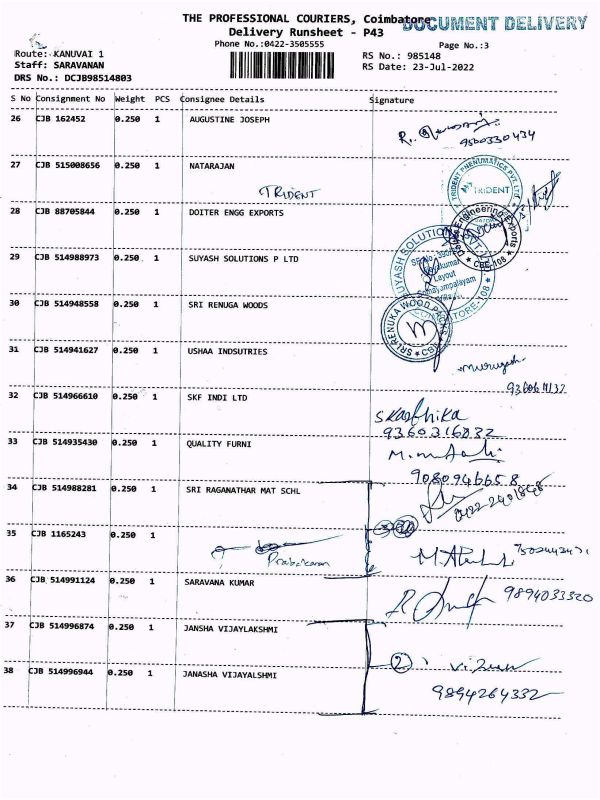 THE PROFESSIONAL COURIERS, Coimbatore
DOCUMENT DELIVERY
Delivery Runsheet - P43
Phone No.:0422-3505555
Page No.:3
Route: KANUVAI 1
RS No.: 985148
Staff: SARAVANAN
RS Date: 23-Jul-2022
DRS No.: DCJB98514803
S No Consignment No Weight PCS Consignee Details Signature
26 CJB 162452 0.250 1 AUGUSTINE JOSEPH
9500330434
27 CJB 515008656 0.250 1 NATARAJAN
TRIDENT
TRIDENT PNEUMATICS PVT. LTD
TRIDENT
28 CJB 88705844 0.250 1 DOITER ENGG EXPORTS
Engineering Exports
CBE-108
29 CJB 514988973 0.250 1 SUYASH SOLUTIONS P LTD
SUYASH SOLUTIONS PVT. LTD
Layout
Somayampalayam
COIMBATORE-108
30 CJB 514948558 0.250 1 SRI RENUGA WOODS
SRI RENUKA WOOD PACKS
CBE
31 CJB 514941627 0.250 1 USHAA INDSUTRIES
Murugesh
32 CJB 514966610 0.250 1 SKF INDI LTD
SKarthika
9360316832
33 CJB 514935430 0.250 1 QUALITY FURNI
9080946658
34 CJB 514988281 0.250 1 SRI RAGANATHAR MAT SCHL
0422-2401848
35 CJB 1165243 0.250 1
Prabakaran
36 CJB 514991124 0.250 1 SARAVANA KUMAR
9894033320
37 CJB 514996874 0.250 1 JANSHA VIJAYLAKSHMI
2
38 CJB 514996944 0.250 1 JANASHA VIJAYALSHMI
9894264332